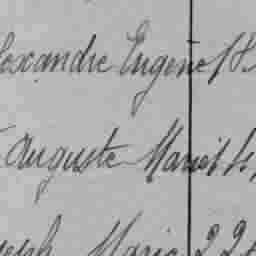 lexandre Eugène
Auguste Marie
seph Marie 22